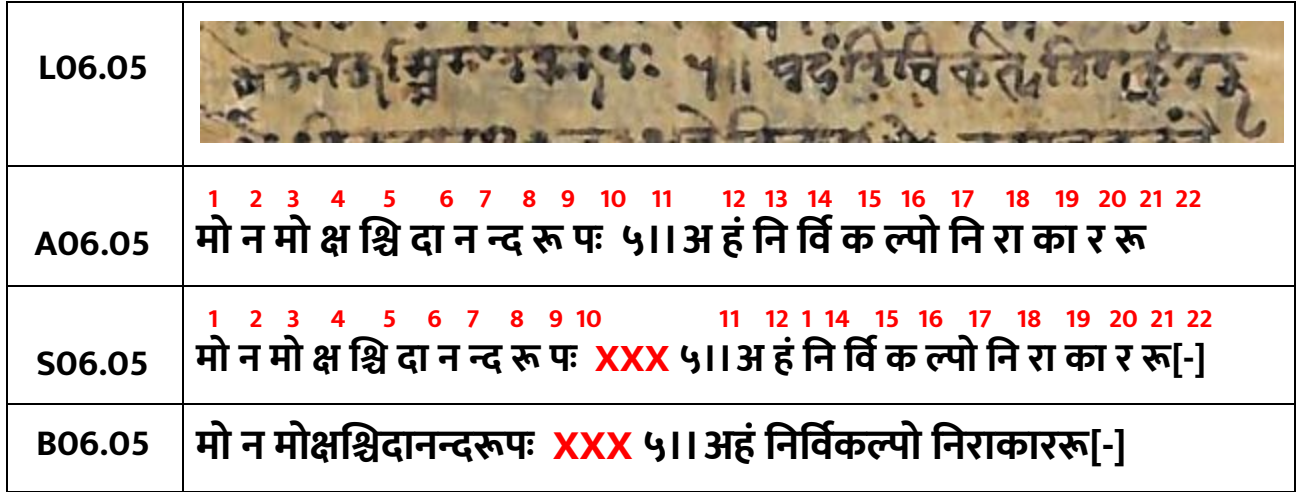 L06.05
1 2 3 4 5 6 7 8 9 10 11 12 13 14 15 16 17 18 19 20 21 22
A06.05 मो न मो क्ष श्चि दा न न्द रू पः ५।। अ हं नि र्वि क ल्पो नि रा का र रू
1 2 3 4 5 6 7 8 9 10 11 12 1 14 15 16 17 18 19 20 21 22
S06.05 मो न मो क्ष श्चि दा न न्द रू पः XXX ५।। अ हं नि र्वि क ल्पो नि रा का र रू[-]
B06.05 मो न मोक्षश्चिदानन्दरूपः XXX ५।। अहं निर्विकल्पो निराकाररू[-]